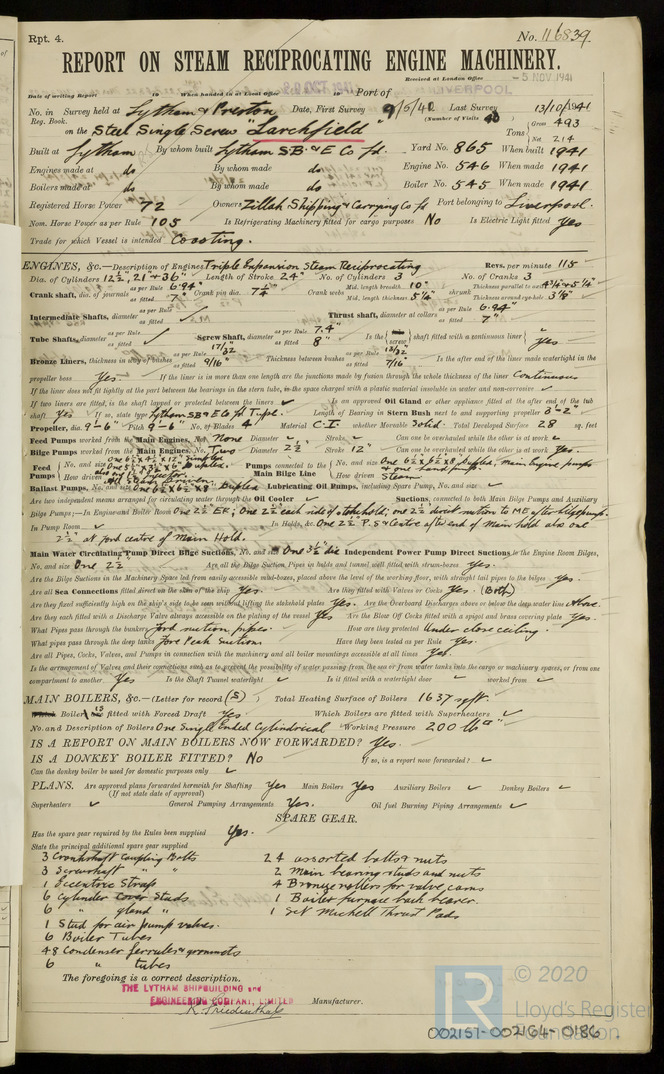 Rpt. 4.
No. 116839.
REPORT ON STEAM RECIPROCATING ENGINE MACHINERY.
Received at London Office
5 NOV 1941
Date of writing Report 19 When handed in at Local Office 19 Port of LIVERPOOL
No. in Survey held at Lytham & Preston Date, First Survey 9/5/40 Last Survey 13/10/1941
Reg. Book. (Number of Visits 48)
on the Steel Single Screw "Larchfield" Tons Gross 493 Net 214
Built at Lytham By whom built Lytham S.B. & E Co Ld. Yard No. 865 When built 1941
Engines made at do By whom made do Engine No. 546 When made 1941
Boilers made at do By whom made do Boiler No. 545 When made 1941
Registered Horse Power 72 Owners Zillah Shipping & Carrying Co Ld Port belonging to Liverpool.
Nom. Horse Power as per Rule 105 Is Refrigerating Machinery fitted for cargo purposes No Is Electric Light fitted Yes
Trade for which Vessel is intended Coasting.
ENGINES, &c.—Description of Engines Triple Expansion Steam Reciprocating Revs. per minute 115
Dia. of Cylinders 12½, 21 & 36" Length of Stroke 24" No. of Cylinders 3 No. of Cranks 3
Crank shaft, dia. of journals as per Rule 6.94" as fitted 7" Crank pin dia. 7¼" Crank webs Mid. length breadth 10" Mid. length thickness 5¼" shrunk Thickness parallel to axis Thickness around eye-hole 3⅛"
Intermediate Shafts, diameter as per Rule as fitted Thrust shaft, diameter at collars as per Rule 6.94" as fitted 7"
Tube Shafts, diameter as per Rule as fitted Screw Shaft, diameter as per Rule 7.4" as fitted 8" Is the screw shaft fitted with a continuous liner Yes
Bronze Liners, thickness in way of bushes as per Rule 17/32 as fitted 9/16" Thickness between bushes as per Rule 13/32 as fitted 7/16" Is the after end of the liner made watertight in the
propeller boss Yes. If the liner is in more than one length are the junctions made by fusion through the whole thickness of the liner Continuous
If the liner does not fit tightly at the part between the bearings in the stern tube, is the space charged with a plastic material insoluble in water and non-corrosive
If two liners are fitted, is the shaft lapped or protected between the liners Is an approved Oil Gland or other appliance fitted at the after end of the tube
shaft Yes If so, state type Lytham SB & E Co Ld Type. Length of Bearing in Stern Bush next to and supporting propeller 3'-2"
Propeller, dia. 9'-6" Pitch 9'-6" No. of Blades 4 Material C.I. whether Moveable Solid. Total Developed Surface 28 sq. feet
Feed Pumps worked from the Main Engines, No. None Diameter Stroke Can one be overhauled while the other is at work
Bilge Pumps worked from the Main Engines, No. Two Diameter 2½" Stroke 12" Can one be overhauled while the other is at work Yes.
Feed Pumps No. and size How driven Pumps connected to the Main Bilge Line No. and size How driven Steam
Ballast Pumps, No. and size One 6½ x 6½ x 8 Duplex Lubricating Oil Pumps, including Spare Pump, No. and size
Are two independent means arranged for circulating water through the Oil Cooler Suctions, connected to both Main Bilge Pumps and Auxiliary
Bilge Pumps;—In Engine and Boiler Room One 2½" ER; One 2½ each side of stokehold; one 2½ direct suction to ME after bilge pump.
In Pump Room In Holds, &c. One 2½" P.S & Centre after end of Main hold also one
2½" at ford centre of Main Hold.
Main Water Circulating Pump Direct Bilge Suctions, No. and size One 3½ dia Independent Power Pump Direct Suctions to the Engine Room Bilges,
No. and size One 2½" Are all the Bilge Suction Pipes in holds and tunnel well fitted with strum-boxes Yes.
Are the Bilge Suctions in the Machinery Space led from easily accessible mud-boxes, placed above the level of the working floor, with straight tail pipes to the bilges Yes.
Are all Sea Connections fitted direct on the skin of the ship Yes. Are they fitted with Valves or Cocks Yes. (Both)
Are they fixed sufficiently high on the ship's side to be seen without lifting the stokehold plates Yes. Are the Overboard Discharges above or below the deep water line Above.
Are they each fitted with a Discharge Valve always accessible on the plating of the vessel Yes Are the Blow Off Cocks fitted with a spigot and brass covering plate Yes.
What Pipes pass through the bunkers ford suction pipes. How are they protected Under close ceiling.
What pipes pass through the deep tanks Fore Peak Suction. Have they been tested as per Rule Yes.
Are all Pipes, Cocks, Valves, and Pumps in connection with the machinery and all boiler mountings accessible at all times Yes.
Is the arrangement of Valves and their connections such as to prevent the possibility of water passing from the sea or from water tanks into the cargo or machinery spaces, or from one
compartment to another Yes Is the Shaft Tunnel watertight Is it fitted with a watertight door worked from
MAIN BOILERS, &c.—(Letter for record (S) Total Heating Surface of Boilers 1637 sq ft.
Boiler is fitted with Forced Draft Yes. Which Boilers are fitted with Superheaters
No. and Description of Boilers One Single Ended Cylindrical Working Pressure 200 lb □"
IS A REPORT ON MAIN BOILERS NOW FORWARDED? Yes.
IS A DONKEY BOILER FITTED? No If so, is a report now forwarded?
Can the donkey boiler be used for domestic purposes only
PLANS. Are approved plans forwarded herewith for Shafting Yes Main Boilers Yes Auxiliary Boilers Donkey Boilers
(If not state date of approval)
Superheaters General Pumping Arrangements Yes. Oil fuel Burning Piping Arrangements
SPARE GEAR.
Has the spare gear required by the Rules been supplied Yes.
State the principal additional spare gear supplied
3 Crankshaft Coupling Bolts 24 assorted bolts & nuts
3 Screwshaft " " 2 Main bearing studs and nuts
1 Eccentric Strap 4 Bronze rollers for valve cams
6 Cylinder cover studs 1 Boiler furnace back bearer.
6 " gland " 1 Set Michell Thrust Pads
1 Stud for air pump valves.
6 Boiler Tubes
48 Condenser ferrules & grommets
6 " tubes
The foregoing is a correct description.
THE LYTHAM SHIPBUILDING and
ENGINEERING COMPANY, LIMITED Manufacturer.
LR © 2020
Lloyd's Register
Foundation
002157-002164-0186